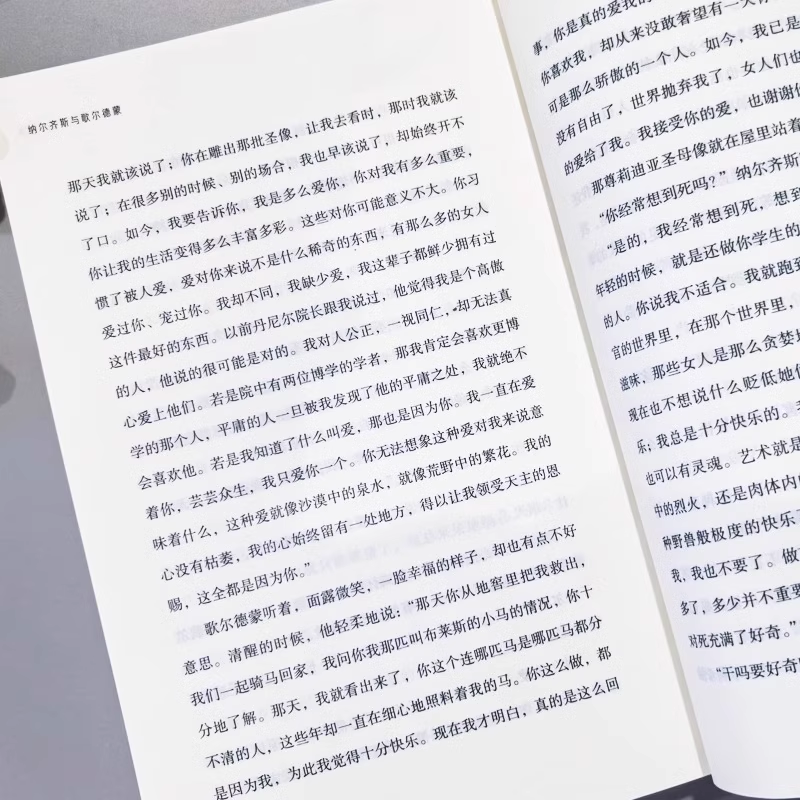 纳尔齐斯与歌尔德蒙
那天我就该说了；你在雕出那批圣像，让我去看时，那时我就该
说了；在很多别的时候、别的场合，我也早该说了，却始终开不
了口。如今，我要告诉你，我是多么爱你，你对我有多么重要，
你让我的生活变得多么丰富多彩。这些对你可能意义不大。你习
惯了被人爱，爱对你来说不是什么稀奇的东西，有那么多的女人
爱过你、宠过你。我却不同，我缺少爱，我这辈子都鲜少拥有过
这件最好的东西。以前丹尼尔院长跟我说过，他觉得我是个高傲
的人，他说的很可能是对的。我对人公正，一视同仁，却无法真
心爱上他们。若是院中有两位博学的学者，那我肯定会喜欢更博
学的那个人，平庸的人一旦被我发现了他的平庸之处，我就绝不
会喜欢他。若是我知道了什么叫爱，那也是因为你。我一直在爱
着你，芸芸众生，我只爱你一个。你无法想象这种爱对我来说意
味着什么，这种爱就像沙漠中的泉水，就像荒野中的繁花。我的
心没有枯萎，我的心始终留有一处地方，得以让我领受天主的恩
赐，这全都是因为你。”
歌尔德蒙听着，面露微笑，一脸幸福的样子，却也有点不好
意思。清醒的时候，他轻柔地说：“那天你从地窖里把我救出，
我们一起骑马回家，我问你我那匹叫布莱斯的小马的情况，你十
分地了解。那天，我就看出来了，你这个连哪匹马是哪匹马都分
不清的人，这些年却一直在细心地照料着我的马。你这么做，都
是因为我，为此我觉得十分快乐。现在我才明白，真的是这么回
事，你是真的爱我的
你喜欢我，却从来没敢奢望有一天你
可是那么骄傲的一个人。如今，我已是
没有自由了，世界抛弃我了，女人们也
的爱给了我。我接受你的爱，也谢谢你
那尊莉迪亚圣母像就在屋里站着
“你经常想到死吗？”纳尔齐斯
“是的，我经常想到死，想到
年轻的时候，就是还做你学生的
的人。你说我不适合。我就跑到
官的世界里，在那个世界里，
滋味，那些女人是那么贪婪地
现在也不想说什么贬低她们
乐；我总是十分快乐的。
也可以有灵魂。艺术就是
中的烈火，还是肉体内
种野兽般极度的快乐
我，我也不要了。做
多了，多少并不重要
对死充满了好奇。”
“干吗要好奇